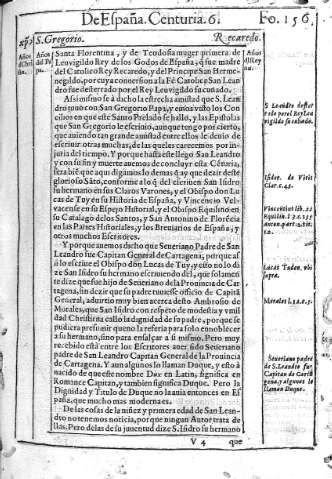 De España. Centuria. 6. Fo. 156.
S. Gregorio. Recaredo.
Años de Christo. Años del Papa.
Santa Florentina, y de Teodosia muger primera de
Leuvigildo Rey de los Godos de España, q̃ fue madre
del Catolico Rey Recaredo, y del Principe San Herme-
negildo, por cuya conuersion a la Fè Catolica San Lean
dro fue desterrado por el Rey Leuvigildo su cuñado.
Assi mismo se à dicho la estrecha amistad que S. Lean
dro tuuo con San Gregorio Papa, y en que visto los Con
cilios en que este Santo Prelado se hallo, y las Epistolas
que San Gregorio le escriuio, aunque tengo por cierto,
que auiendo tan grande amistad entre ellos le deuio de
escriuir otras muchas, de las quales carecemos por in-
juria del tiempo. Y porque hasta este llegò San Leandro
y con su fin y muerte auemos de concluyr esta Céturia,
serà biẽ que aqui digamos lo demas q̃ ay que dezir deste
glorioso Sãto, conforme a lo q̃ del escriuen San Isidro
su hermano en sus Claros Varones, y el Obispo don Lu
cas de Tuy en su Historia de España, y Vincencio Vel-
vacense en su Espejo Historial, y el Obispo Equilino en
su Catalago de los Santos, y San Antonino de Florecia
en las Partes Historiales, y los Breuiarios de España, y
otros muchos Escritores.
Y porque auemos dicho que Seueriano Padre de San
Leandro fue Capitan General de Cartagena, porque as
si lo escriue el Obispo don Lucas de Tuy, y esto no lo di
ze San Isidro su hermano escriuendo del, que solamen
te dize que fue hijo de Seueriano de la Prouincia de Car
tagena, sin dezir que su padre tuuiesse oficio de Capitã
General, aduirtio muy bien acerca desto Ambrosio de
Morales, que San Isidro con respeto de modestia y vmil
dad Christiana callò la dignidad de su padre, porque se
pudiera presumir que no la referia para solo ennoblecer
a su hermano, sino para ensalçar a si mismo. Pero muy
recebido està entre los Escritores auer sido Seueriano
padre de San Leandro Capitan General de la Prouincia
de Cartagena. Y aun algunos lo llaman Duque, y esto à
nacido de que este nombre Dux en Latin, significa en
Romance Capitan, y tambien significa Duque. Pero la
Dignidad y Titulo de Duque no la auia entonces en Es
paña, que mucho mas moderna es.
De las cosas de la niñez y primera edad de San Lean-
dro no tenemos noticia, porque ningun Autor trata de
llas. Pero de las de su juuentud dize S. Isidro su hermano
V 4 que
S Leandro dester
rado por el Rey Leu
vigildo su cuñado.
Isidor. de Viris
Clar. c. 45.
Lucas Tudẽn. vbi
supra.
Morales l. 12. c. 5.
Seueriano padre
de S. Leandro fue
Capitan de Carta
gena, y algunos lo
llaman Duque.